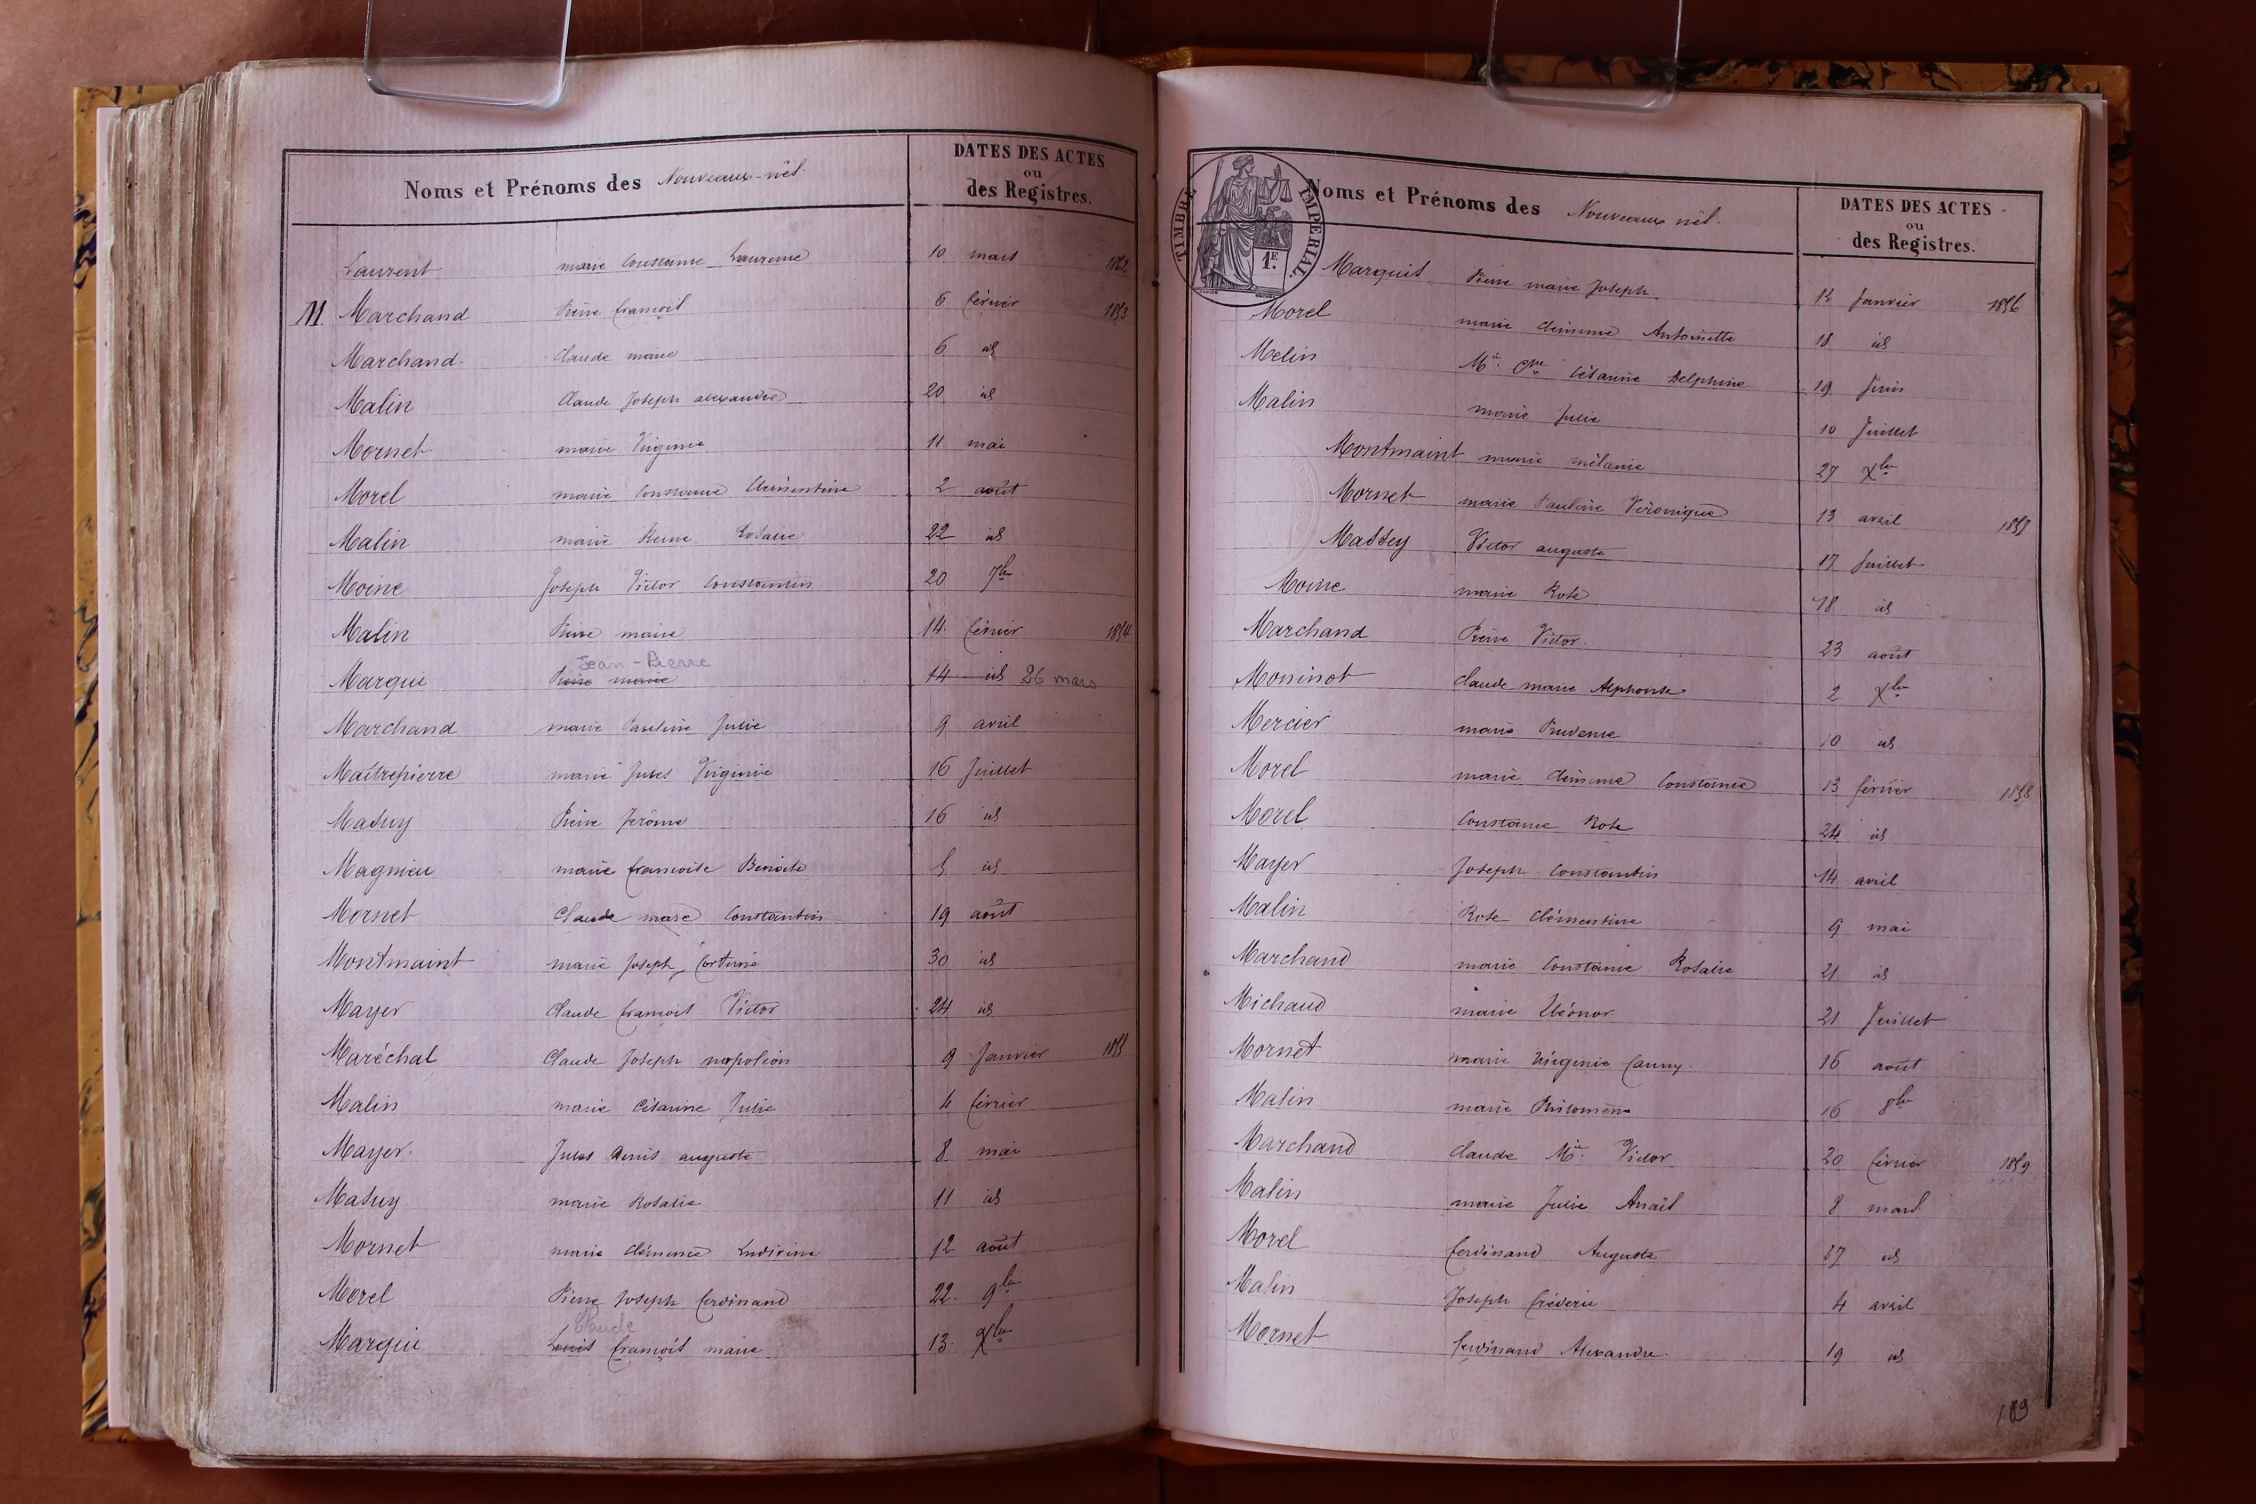 Noms et Prénoms des Nouveaux-nés.
DATES DES ACTES
ou
des Registres.
Laurent marie Constance Laurence 10 mars 1862
M Marchand Pierre françois 6 février 1853
Marchand. Claude marie 6 id
Malin Claude Joseph alexandre 20 id
Mornet marie Virginie 11 mai
Morel marie Constance Clémentine 2 août
Malin marie Reine Rosalie 22 id
Moine Joseph Victor Constantin 20 7bre
Malin Pierre marie 14 février 1854
Jean-Pierre
Marqui Pierre marie 14 id 26 mars
Marchand marie Pauline Julie 9 avril
Maîtrepierre marie Jules Virginie 16 Juillet
Masuy Pierre Jérôme 16 id
Magnien marie françoise Benoite id
Mornet Claude marie Constantin 19 août
Montmaint marie Joseph fortuné 30 id
Mayer Claude françois Victor 24 id
Maréchal Claude Joseph napoléon 9 Janvier 1855
Malin marie Césarine Julie 4 février
Mayer. Jules Denis auguste 8 mai
Masuy marie Rosalie 11 id
Mornet marie Clémence Ludivine 12 août
Morel Pierre Joseph ferdinand 22. 9bre
Claude
Marqui Louis françois marie 13. Xbre
TIMBRE IMPERIAL.
1.E
Noms et Prénoms des Nouveaux nés.
DATES DES ACTES
ou
des Registres.
Marquis Pierre marie Joseph Janvier 1856
Morel marie Clémence Antoinette 18 id
Melin Mie Césarine Delphine 19 Juin
Malin marie Julie 10 Juillet
Montmaint marie mélanie 27 Xbre
Mornet marie Pauline Véronique 13 avril 1857
Massey Victor auguste 17 Juillet
Moine marie Rose 18 id
Marchand Pierre Victor. 23 août
Moninot Claude marie Alphonse 2 Xbre
Mercier marie Prudence 10 id
Morel marie Clémence Constance 13 février 1858
Morel Constance Rose 24 id
Mayer Joseph Constantin 14 avril
Malin Rose Clémentine 9 mai
Marchand marie Constance Rosalie 21 id
Michaud marie Eléonor 21 Juillet
Mornet marie Virginie fanny 16 août
Malin marie Philomène 16 8bre
Marchand Claude Mie Victor 20 février 1859
Malin marie Julie Anaïs 8 mars
Morel ferdinand Auguste 27 id
Malin Joseph fréderic 4 avril
Mornet ferdinand Alexandre. 19 id
189